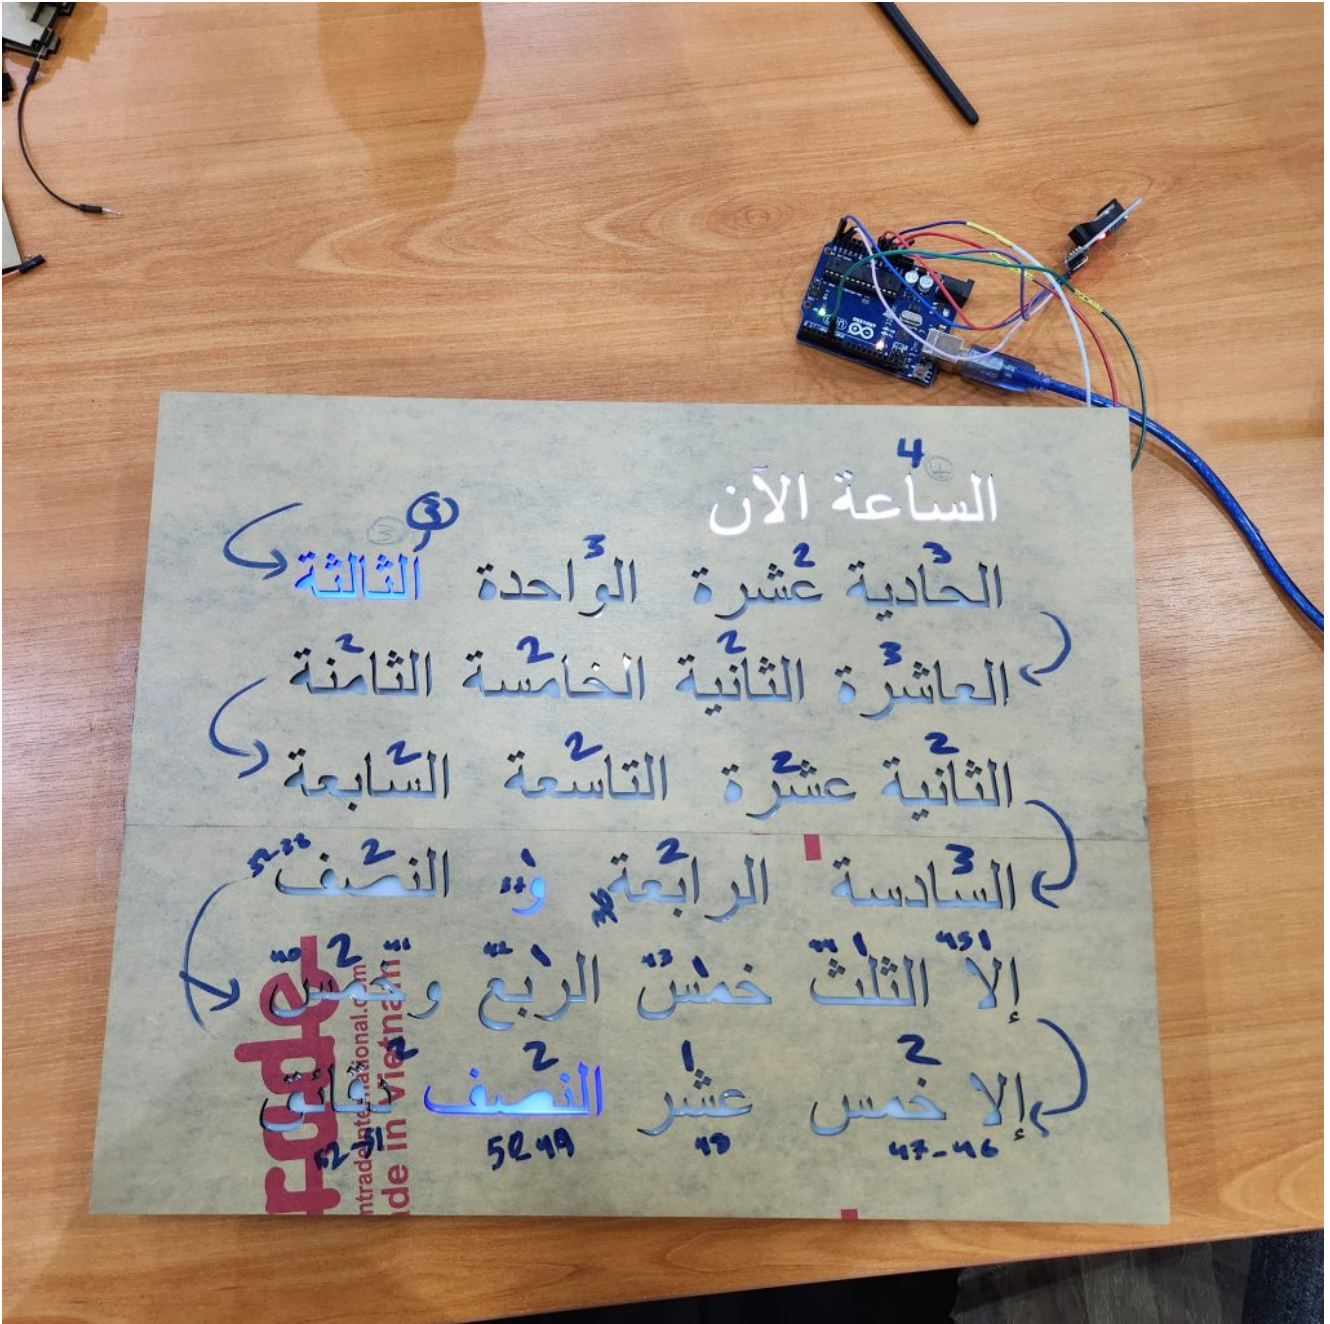 4
الساعة الآن
3 2 3 3
الحادية عشرة الواحدة الثالثة
3 2 2 2
العاشرة الثانية الخامسة الثامنة
2 2 2 2
الثانية عشرة التاسعة السابعة
3 2 1 2
السادسة الرابعة و النصف
36 37
451 44 1 43 1 42 1 41 2 40
إلا الثلث خمس الربع وخمس
2 1 2 2
إلا خمس عشر النصف دقائق
47-46 48 50 49 52-51
ntradeinternational.com
de in Vietnam